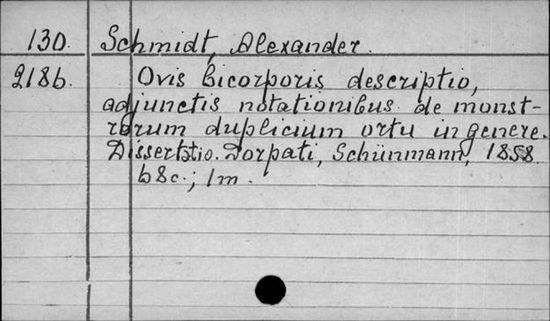 130. Schmidt, Alexander.
2186. Ovis bicorporis descriptio,
adjunctis notationibus de monst-
rorum duplicium ortu in genere.
Dissertatio. Dorpati, Schünmann, 1858.
68c.; 1m.